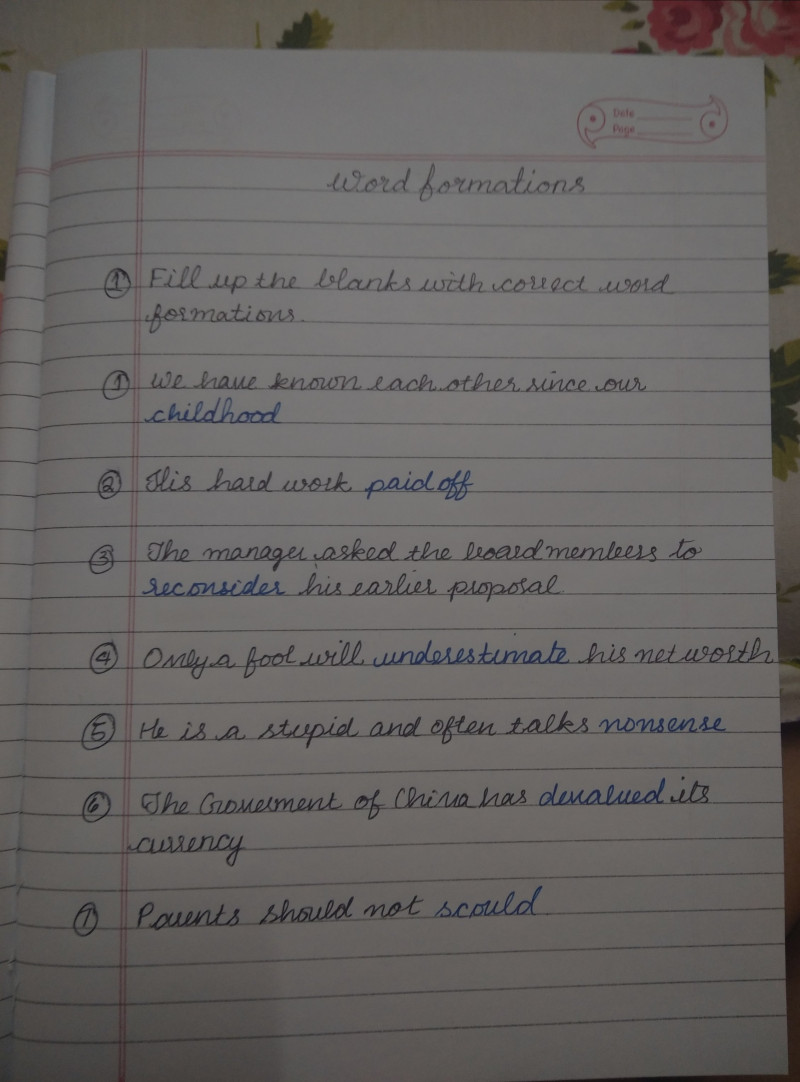 Date
Page
Word formations
① Fill up the blanks with correct word
formations.
① We have known each other since our
childhood
② His hard work paid off
③ The manager asked the board members to
reconsider his earlier proposal
④ Only a fool will underestimate his net worth
⑤ He is a stupid and often talks nonsense
⑥ The Government of China has devalued its
currency
⑦ Parents should not scould